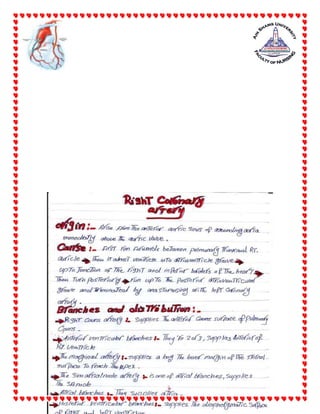 AIN SHAMS UNIVERSITY
FACULTY OF NURSING
RIGHT Coronary
artery
origin:- Arise from the anterior aortic sinus of ascending aorta
immediatly above the aortic valve.
Course:- First run forwards between pulmonary trunk and Rt.
auricle then it almost vertical into atrioventricular groove
upto Junction of the right and inferior borders of the heart
then turn posteriorly run upto the posterior atrioventricular
groove and terminated by anastomosing with left Coronary
artery.
Branches and distribution:-
Right Conus artery:- supplies the anterior surface of Pulmonary
Conus.
Anterior ventricular branches:- They 're 2 or 3, supplies anterior of
Rt ventricle
The marginal artery:- supplies along the lower margin of the
surface to reach the apex.
The artery:- is one of atrial branches, supplies
the SA node
Atrial branches:- They supplies atria
Posterior ventricular branches:- supplies the diaphragmatic surface
of Right and left ventricles